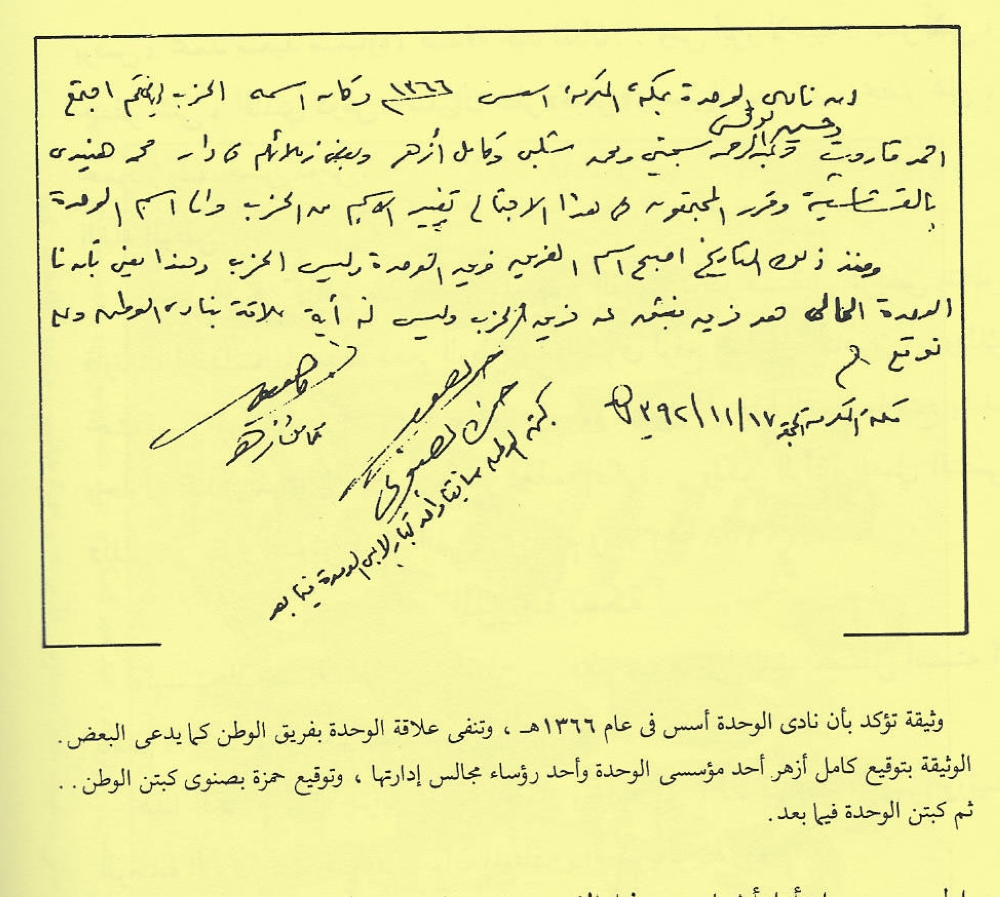 إن نادى الوحدة بمكة المكرمة أسس ١٣٦٦ وكان اسمه الحزب اجتمع
وحسين
احمد قاروت وعبدالرحمن ومحمد شلبى وكامل أزهر وبعض زملائهم فى دار محمد هنيدى
بالقشاشية وقرر المجتمعون فى هذا الاجتماع تغيير الاسم من الحزب وإلى اسم الوحدة
ومنذ ذلك التاريخ اصبح اسم الفريق فريق الوحدة وليس الحزب وهذا يعنى بأن نا
الوحدة الحالى هو فريق منبثق عن فريق الحزب وليس له أية علاقة بنادى الوطن
نوقع
مكة المكرمة ١٣٩٢/١١/١٧
كامل أزهر
كبتن الوطن سابقا الوحدة فيما بعد
وثيقة تؤكد بأن نادى الوحدة أسس فى عام ١٣٦٦هـ ، وتنفى علاقة الوحدة بفريق الوطن كما يدعى البعض .
الوثيقة بتوقيع كامل أزهر أحد مؤسسى الوحدة وأحد رؤساء مجالس إدارتها ، وتوقيع حمزة بصنوى كبتن الوطن . .
ثم كبتن الوحدة فيما بعد .